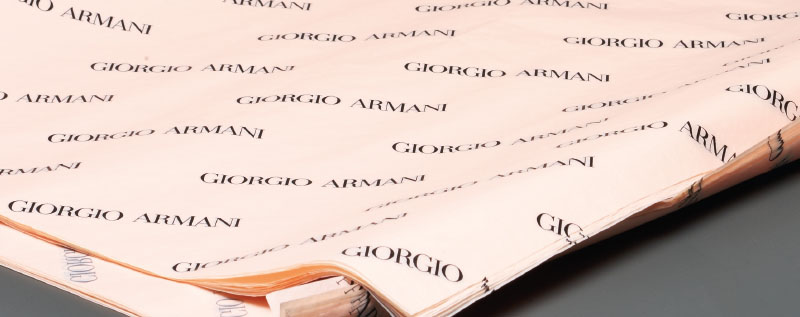 GIORGIO ARMANI
GIORGIO ARMANI
GIORGIO ARMANI
GIORGIO
GIORGIO ARMANI
GIORGIO ARMANI
GIORGIO ARMANI
GIORGIO ARMANI
ARMANI
GIORGIO ARMANI
GIORGIO
GIORGIO ARMANI
GIORGIO ARMANI
GIORGIO ARMANI
GIORGIO
ARMANI
GIORGIO ARMANI
GIORGIO ARMANI
GIORGIO ARMANI
GIORGIO ARMANI
GIORGIO